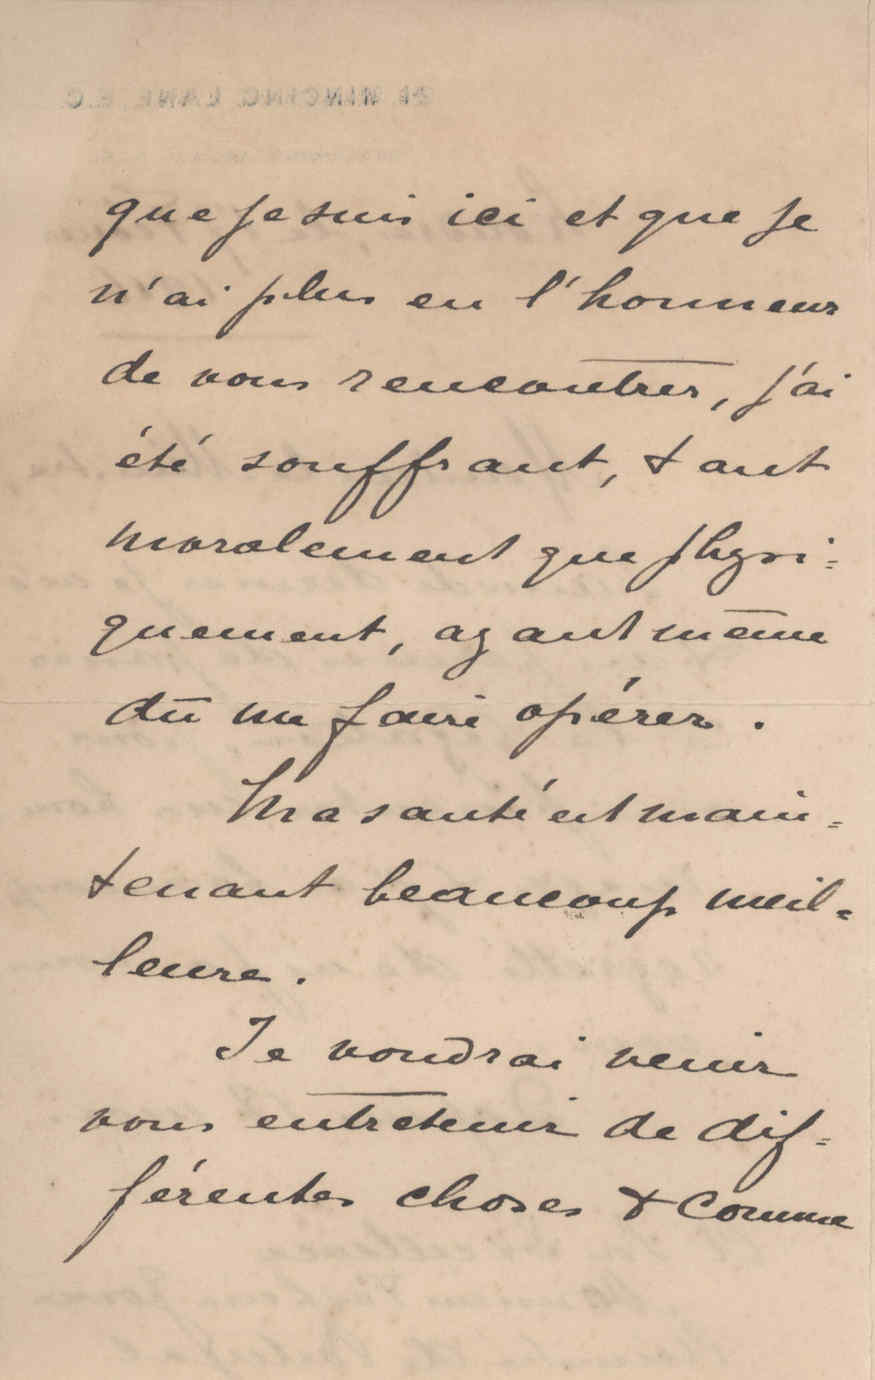 que je suis ici et que je
n'ai plus eu l'honneur
de vous rencontrer, j'ai
été souffrant, tant
moralement que physi=
quement, ayant même
dû me faire opérer.
Ma santé est main=
tenant beaucoup meil=
leure.
Je voudrai venir
vous entretenir de dif=
férentes choses & comme